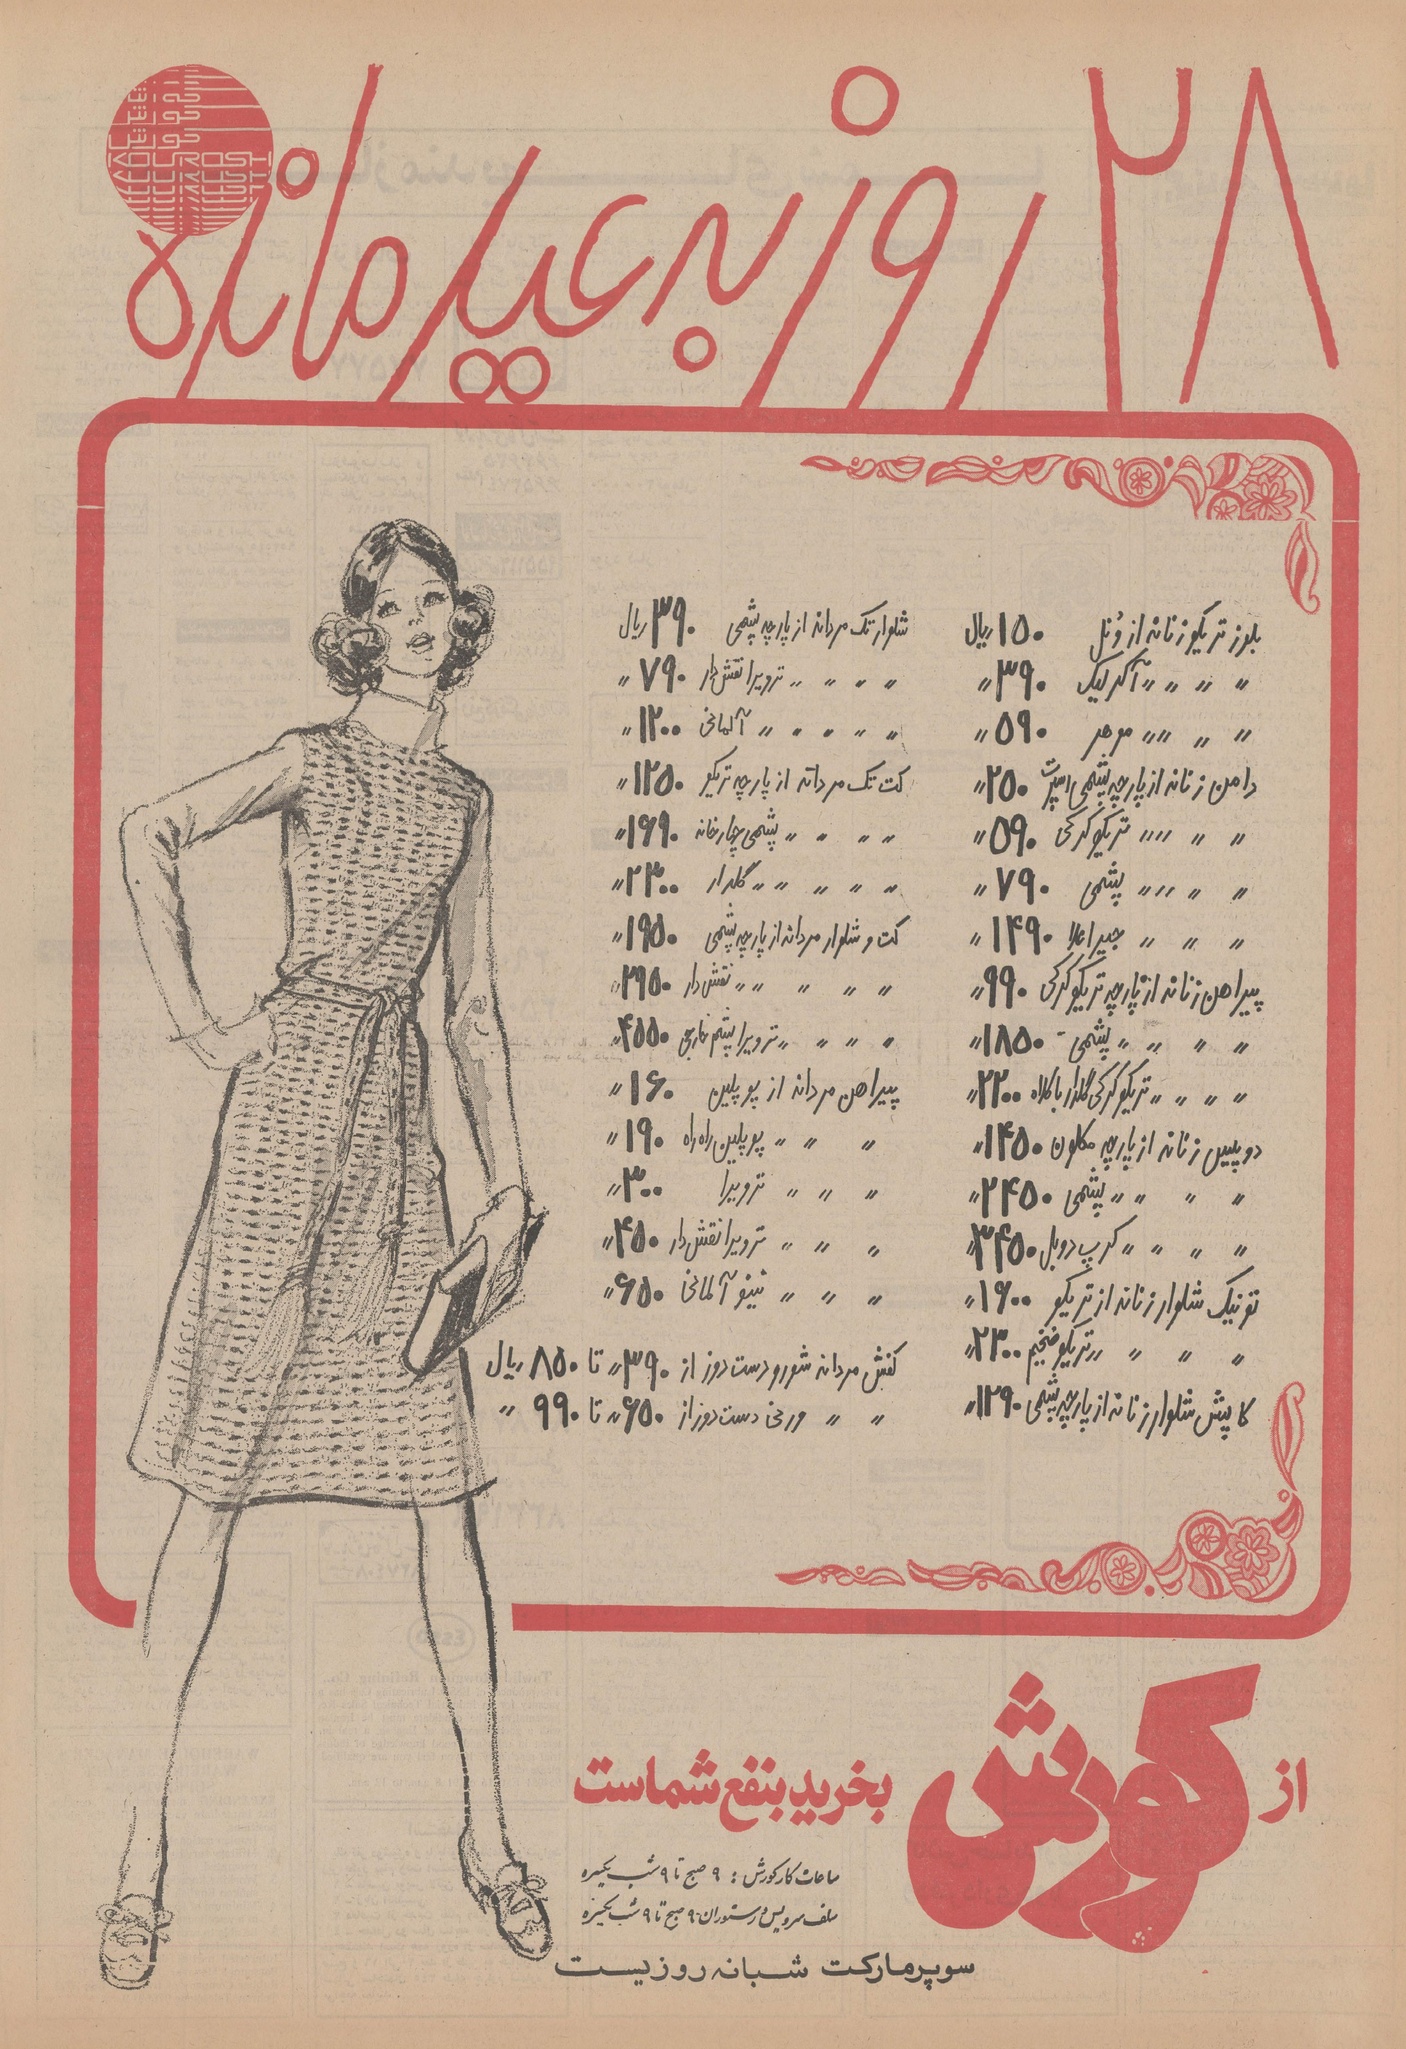 ۲۸ روز به عید مانده
کورش
KOUROSH
بلوز تریکو زنانه از ونل ۱۵۰ ریال
〃 〃 〃 〃 آکرلیک ۳۹۰ 〃
〃 〃 〃 〃 موهر ۵۹۰ 〃
دامن زنانه از پارچه پشمی اسپرت ۲۵۰ 〃
〃 〃 〃 〃 تریکو کرکی ۵۹۰ 〃
〃 〃 〃 〃 پشمی ۷۹۰ 〃
〃 〃 〃 جیر اعلا ۱۴۹۰ 〃
پیراهن زنانه از پارچه تریکو کرکی ۹۹۰ 〃
〃 〃 〃 〃 پشمی ۱۸۵۰ 〃
〃 〃 〃 〃 تریکو کرکی گلدار با کلاه ۲۲۰۰ 〃
دوپیس زنانه از پارچه مکلون ۱۴۵۰ 〃
〃 〃 〃 〃 پشمی ۲۴۵۰ 〃
〃 〃 〃 〃 کرپ دوبل ۳۴۵۰ 〃
تونیک شلوار زنانه از تریکو ۱۶۰۰ 〃
〃 〃 〃 〃 تریکو ضخیم ۲۳۰۰ 〃
کاپش شلوار زنانه از پارچه پشمی ۱۲۹۰ 〃
شلوار تک مردانه از پارچه پشمی ۳۹۰ ریال
〃 〃 〃 〃 ترویرا نقش‌دار ۷۹۰ 〃
〃 〃 〃 〃 〃 آلمانی ۱۲۰۰ 〃
کت تک مردانه از پارچه تریکو ۱۲۵۰ 〃
〃 〃 〃 〃 پشمی چارخانه ۱۶۹۰ 〃
〃 〃 〃 〃 〃 گلدار ۲۳۰۰ 〃
کت و شلوار مردانه از پارچه پشمی ۱۹۵۰ 〃
〃 〃 〃 〃 〃 نقش دار ۲۹۵۰ 〃
〃 〃 〃 〃 ترویرا پشم خارجی ۴۵۵۰ 〃
پیراهن مردانه از پوپلین ۱۶۰ 〃
〃 〃 〃 پوپلین راه راه ۱۹۰ 〃
〃 〃 〃 ترویرا ۳۰۰ 〃
〃 〃 〃 ترویرا نقش‌دار ۴۵۰ 〃
〃 〃 〃 نینو آلمانی ۶۵۰ 〃
کفش مردانه شورو دست دوز از ۳۹۰ 〃 تا ۸۵۰ ریال
〃 〃 ورنی دست دوز از ۶۵۰ 〃 تا ۹۹۰ 〃
از کورش بخرید بنفع شماست
ساعات کار کورش: ۹ صبح تا ۹ شب یکسره
سلف سرویس و رستوران: ۹ صبح تا ۹ شب یکسره
سوپرمارکت شبانه روزیست